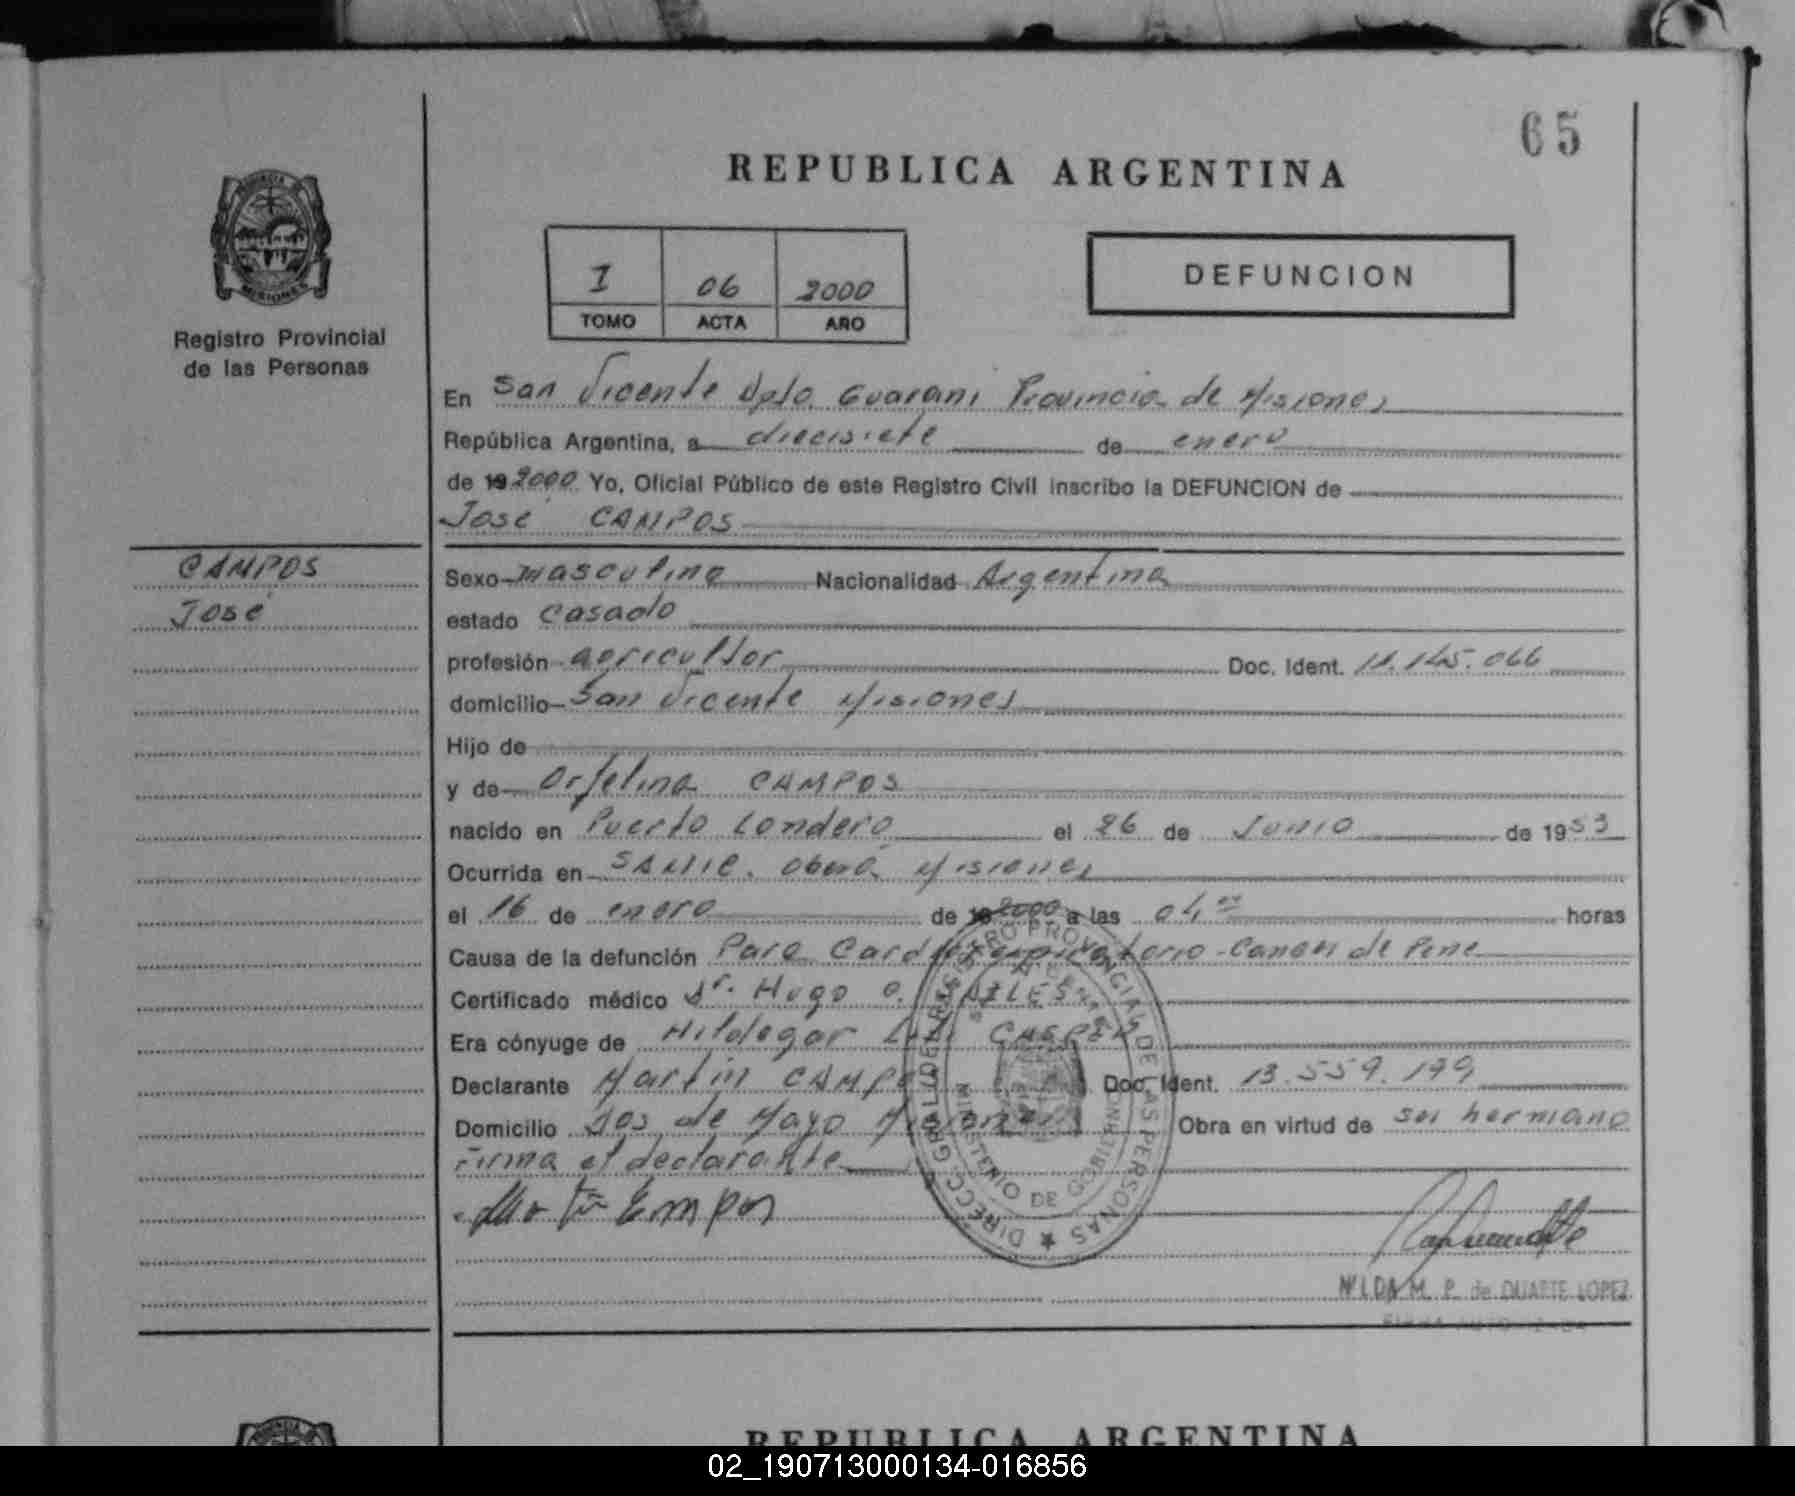 65
REPUBLICA ARGENTINA
PROVINCIA DE
MISIONES
Registro Provincial
de las Personas
I 06 2000
TOMO ACTA AÑO
DEFUNCION
En San Vicente Dpto. Guarani Provincia de Misiones
República Argentina, a diecisiete de enero
de 19 2000 Yo, Oficial Público de este Registro Civil inscribo la DEFUNCION de
José CAMPOS
CAMPOS
José
Sexo masculino Nacionalidad Argentina
estado casado
profesión agricultor Doc. Ident. 11.145.066
domicilio San Vicente Misiones
Hijo de
y de Orfelina CAMPOS
nacido en Puerto Londero el 26 de Junio de 1953
Ocurrida en SAMIC. Oberá Misiones
el 16 de enero de 19 2000 a las 04 horas
Causa de la defunción Paro Cardiorespiratorio - Cancer de Pene
Certificado médico Dr. Hugo O.
Era cónyuge de Hildegar CASPER
Declarante Martin CAMPOS Doc. Ident. 13.559.179
Domicilio Dos de Mayo Misiones Obra en virtud de su hermano
Firma el declarante
DIRECC. GRAL. DEL REGISTRO PROVINCIAL DE LAS PERSONAS
MINISTERIO DE GOBIERNO
NILDA M. P. de DUARTE LOPEZ
REPUBLICA ARGENTINA
02_190713000134-016856